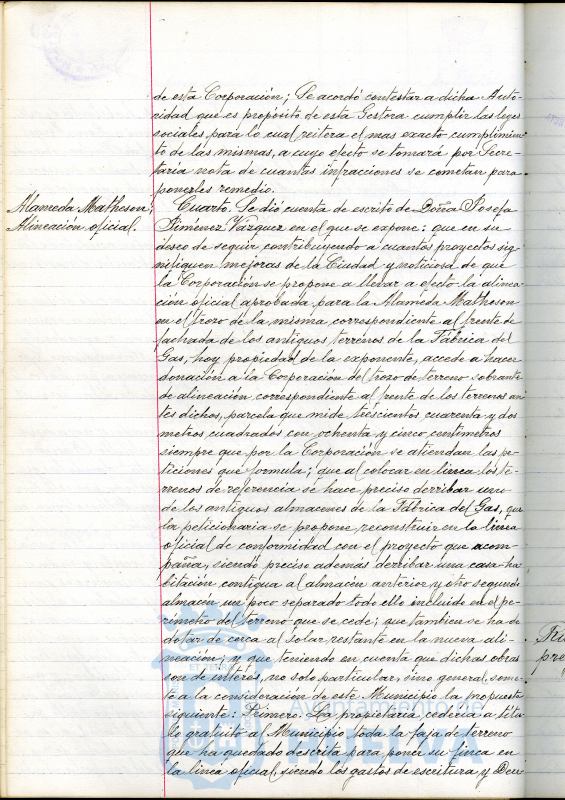 de esta Corporación; Se acordó contestar a dicha Auto-
ridad que es propósito de esta Gestora cumplir las leyes
sociales, para lo cual reitera el mas exacto cumplimien-
to de las mismas, a cuyo efecto se tomará por Secre-
taria nota de cuantas infracciones se cometan para
ponerles remedio.
Alameda Matheson;
Alineación oficial.
Cuarto. Se dió cuenta de escrito de Doña Josefa
Jiménez Vazquez en el que se expone: que en su
deseo de seguir contribuyendo a cuantos proyectos sig-
nifiquen mejoras de la Ciudad y noticiosa de que
la Corporación se propone a llevar a efecto la alinea-
ción oficial aprobada para la Alameda Matheson
en el trozo de la misma correspondiente al frente de
fachada de los antiguos terrenos de la Fábrica del
Gas, hoy propiedad de la exponente, accede a hacer
donación a la Corporación del trozo de terreno sobrante
de alineación correspondiente al frente de los terrenos an-
tes dichos, parcela que mide trescientos cuarenta y dos
metros cuadrados con ochenta y cinco centimetros
siempre que por la Corporación se atiendan las pe-
ticiones que formula; que al colocar en linea los te-
rrenos de referencia se hace preciso derribar uno
de los antiguos almacenes de la Fábrica del Gas, que
la peticionaria se propone reconstruir en la linea
oficial de conformidad con el proyecto que acom-
paña, siendo preciso además derribar una casa-ha-
bitación contigua al almacén anterior y otro segundo
almacén un poco separado todo ello incluido en el pe-
rímetro del terreno que se cede; que tambien se ha de
dotar de cerca al solar restante en la nueva ali-
neación; y que teniendo en cuenta que dichas obras
son de interés, no solo particular, sino general, some-
te a la consideración de este Municipio la propuesta
siguiente: Primero. La propietaria cederia a títu-
lo gratuito al Municipio toda la faja de terreno
que ha quedado descrita para poner su finca en
la linea oficial, siendo los gastos de escritura y Dere-
Ayuntamiento de
HUELVA